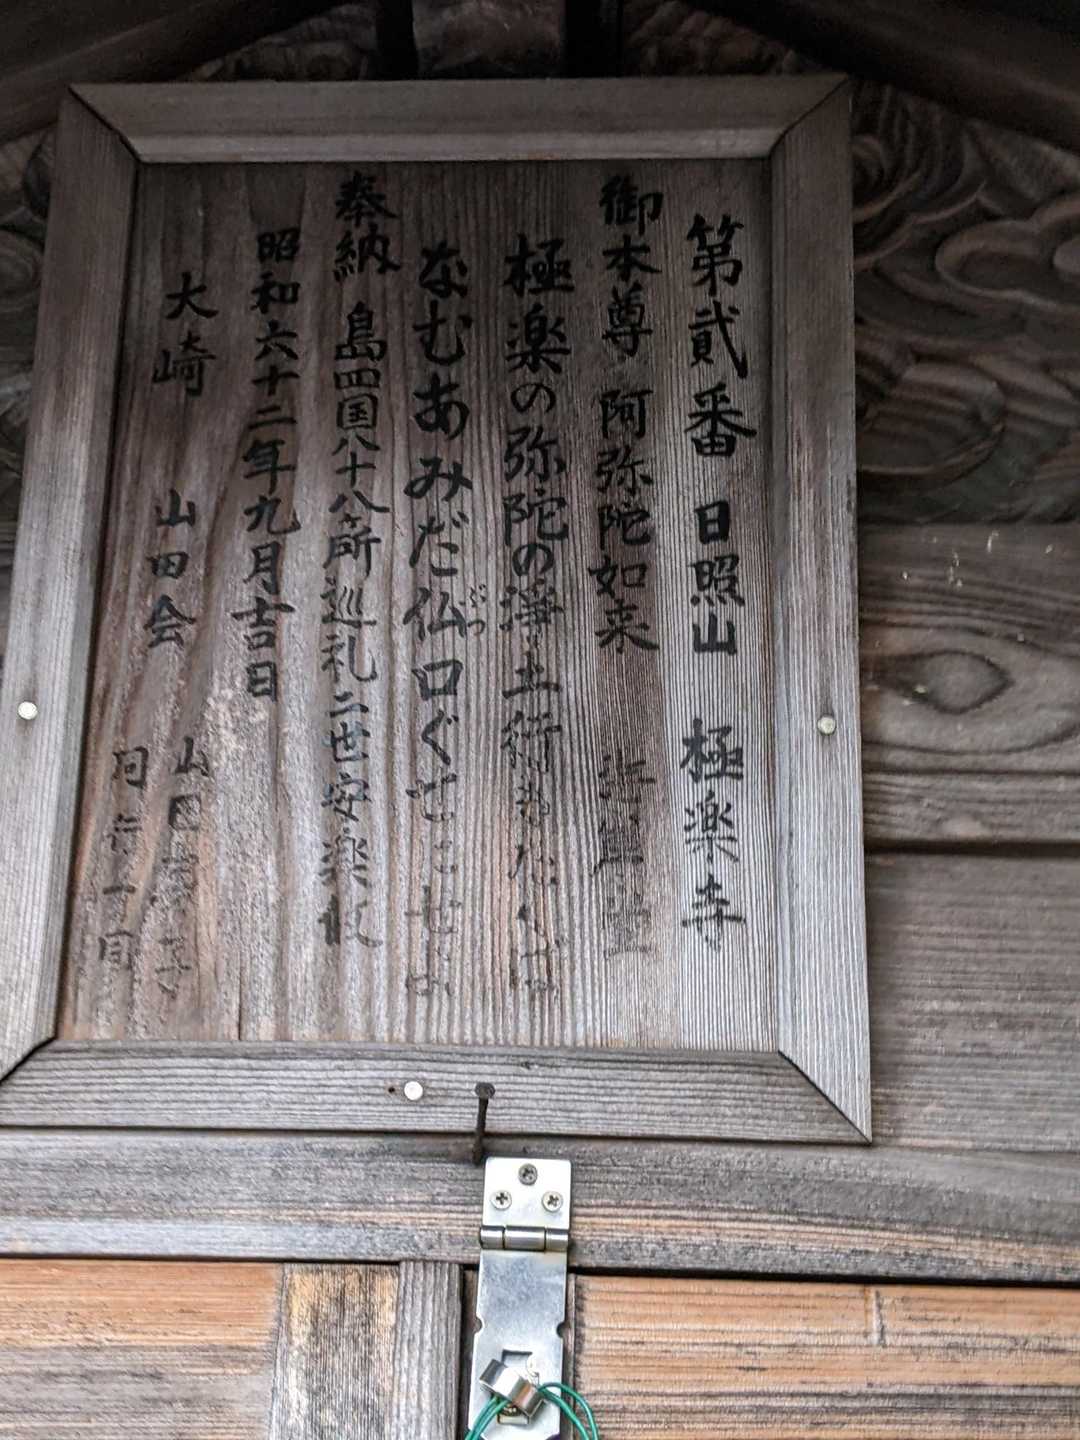 第貳番 日照山 極楽寺
御本尊 阿弥陀如来
極楽の弥陀の浄土へ行きたくば
なむあみだ仏口ぐせにせよ
ぶつ
奉納 島四国八十八ヶ所巡礼二世安楽故
昭和六十二年九月吉日
大崎 山田会 山田
同行一同